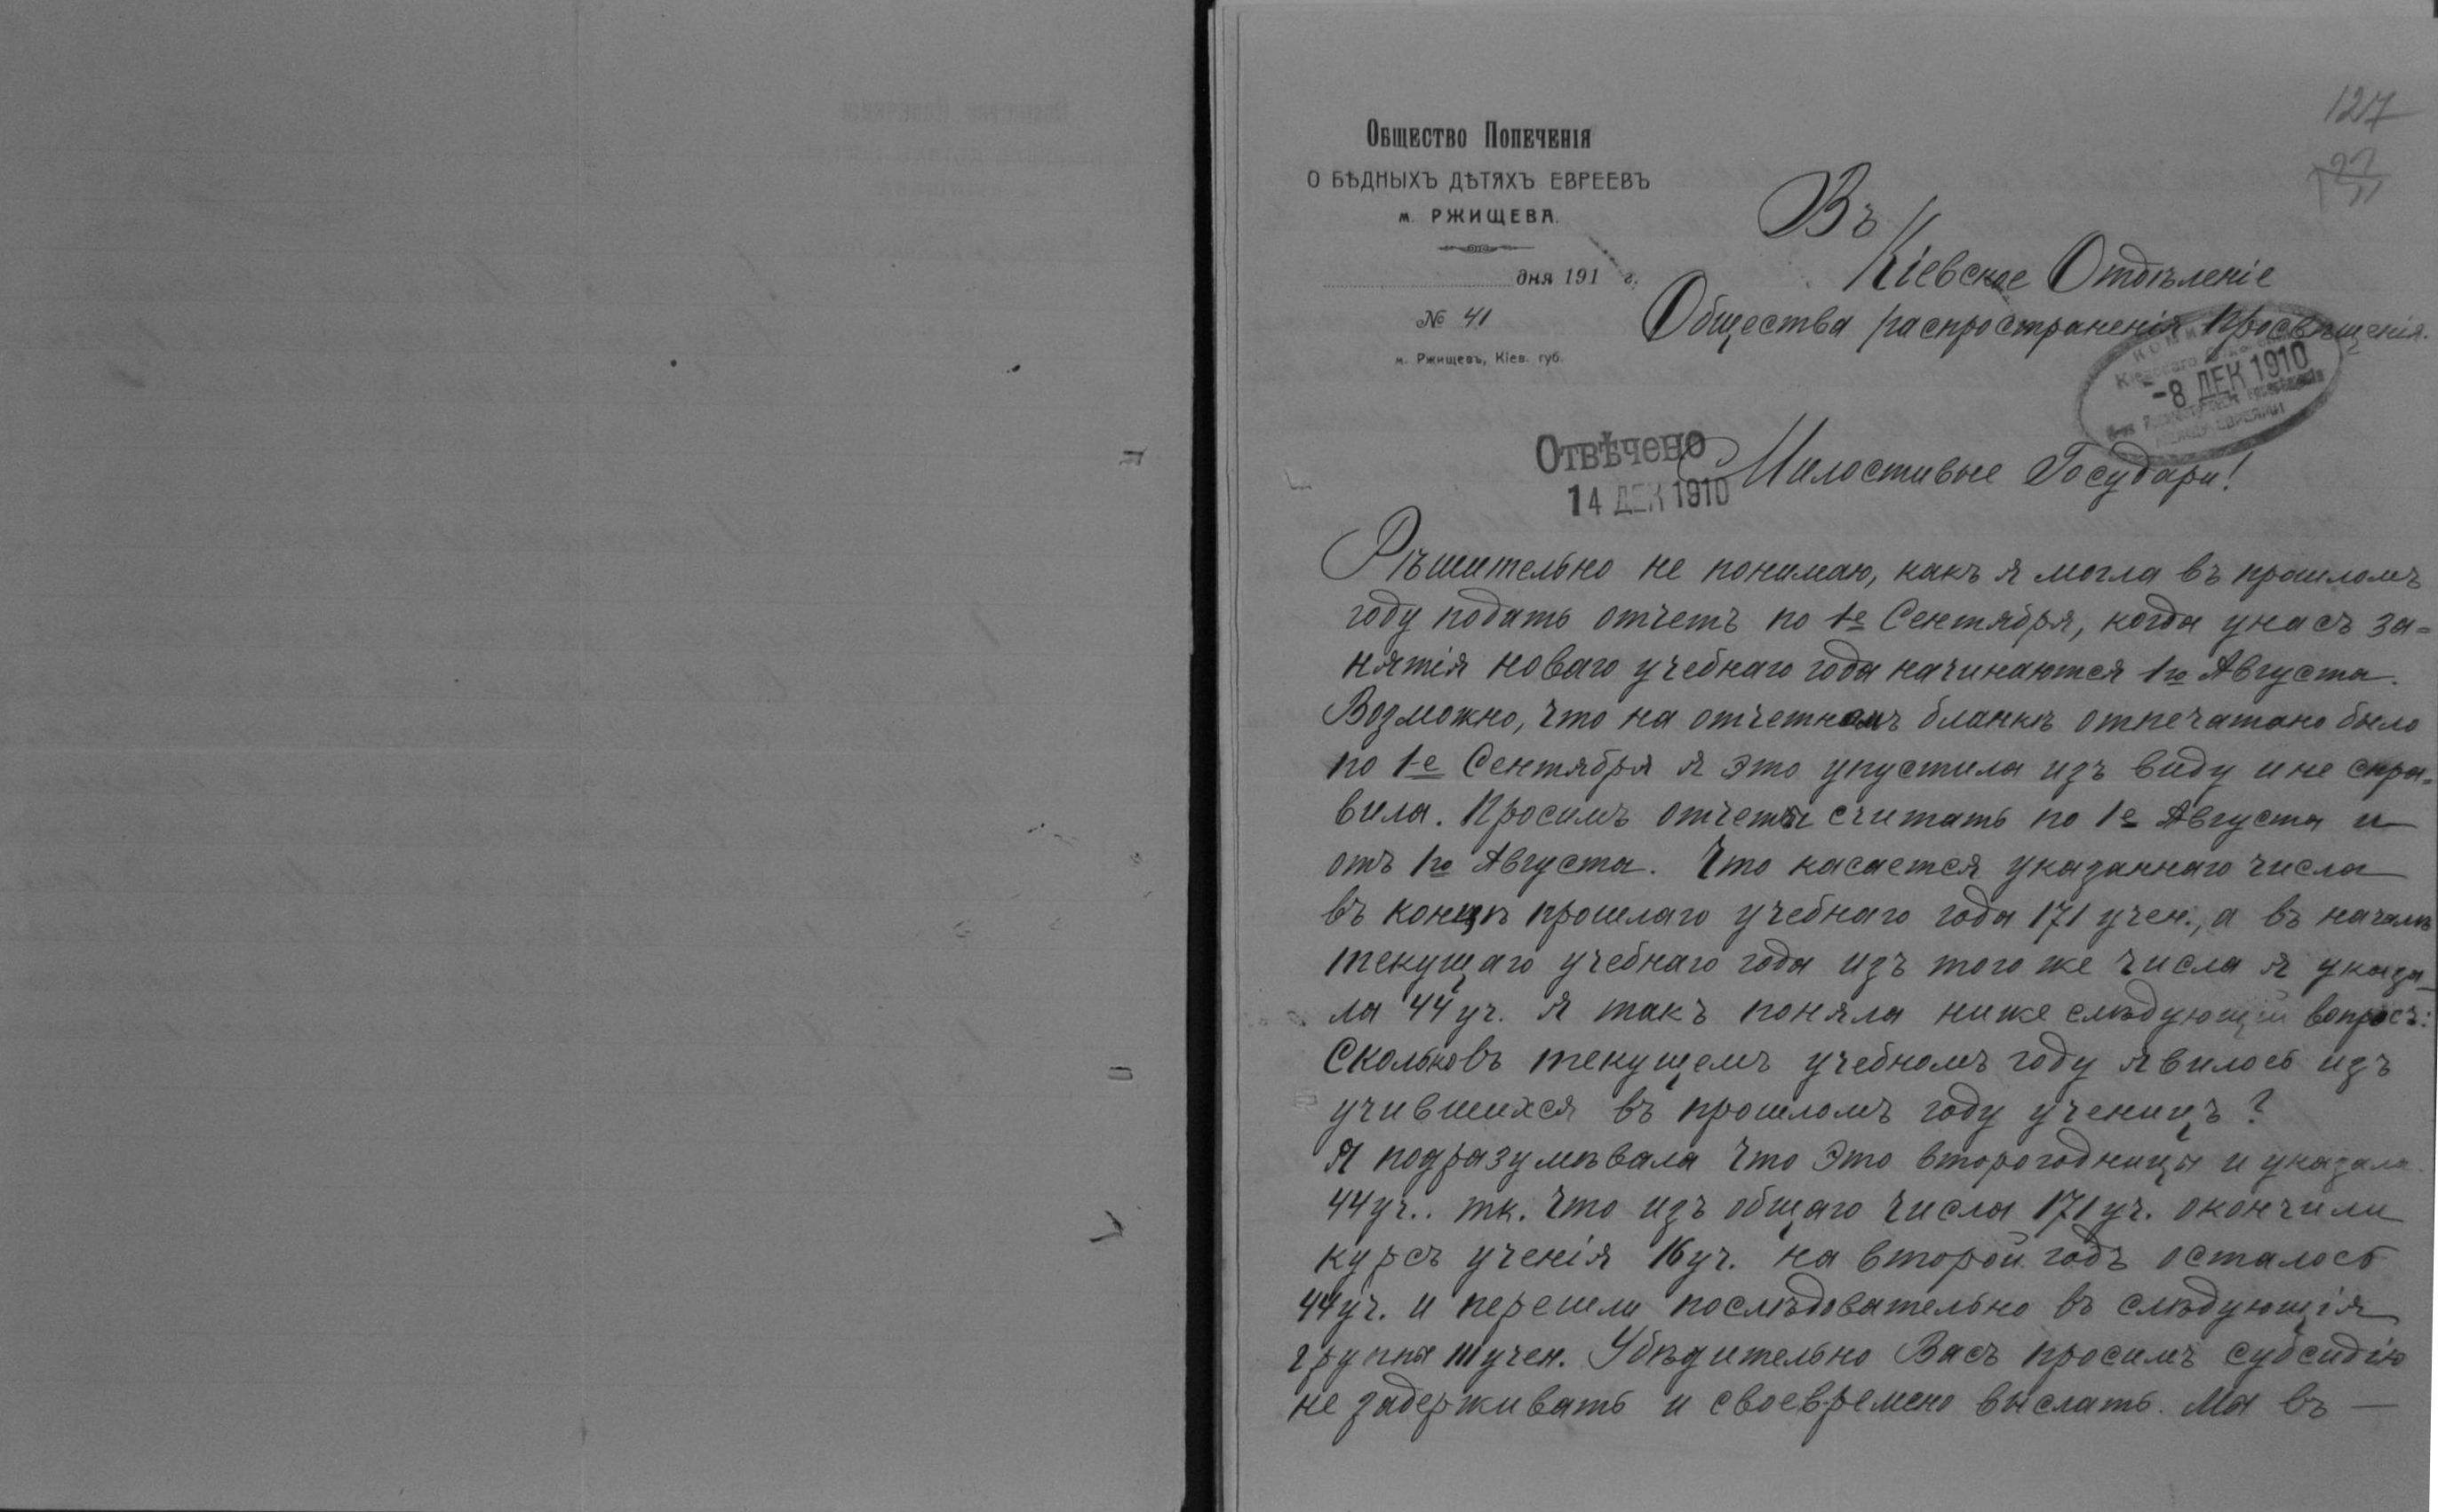 127
Общество Попеченія
о бѣдныхъ дѣтяхъ евреевъ
м. Ржищева.
дня 191 г.
№ 41
м. Ржищевъ, Кіев. губ.
Въ
Кіевское Отдѣленіе
Общества распространенія Просвѣщенія.
-8 ДЕК 1910
Отвѣчено
14 ДЕК 1910
Милостивые Государи!
Рѣшительно не понимаю, какъ я могла въ прошломъ
году подать отчетъ по 1е Сентября, когда унасъ за=
нятія новаго учебнаго года начинаются 1го Августа.
Возможно, что на отчетномъ бланкѣ отпечатано было
по 1-е Сентября я это упустила изъ виду и не спра=
вила. Просимъ отчеты считать по 1е Августа и
отъ 1го Августа. Что касается указаннаго числа
въ концѣ прошлаго учебнаго года 171 учен., а въ началѣ
текущаго учебнаго года изъ того же числа я указа_
ла 44 уч. Я такъ поняла ниже слѣдующій вопросъ:
Сколько въ текущемъ учебномъ году явилось изъ
учившихся въ прошломъ году ученицъ?
Я подразумѣвала что это второгодницы и указала
44 уч.. тк. что изъ общаго числа 171 уч. окончили
курсъ ученія 16 уч. на второй годъ осталось
44 уч. и перешли послѣдовательно въ слѣдующія
группы 111 учен. Убѣдительно Васъ просимъ субсидію
не задерживать и своевремено выслать. Мы въ —